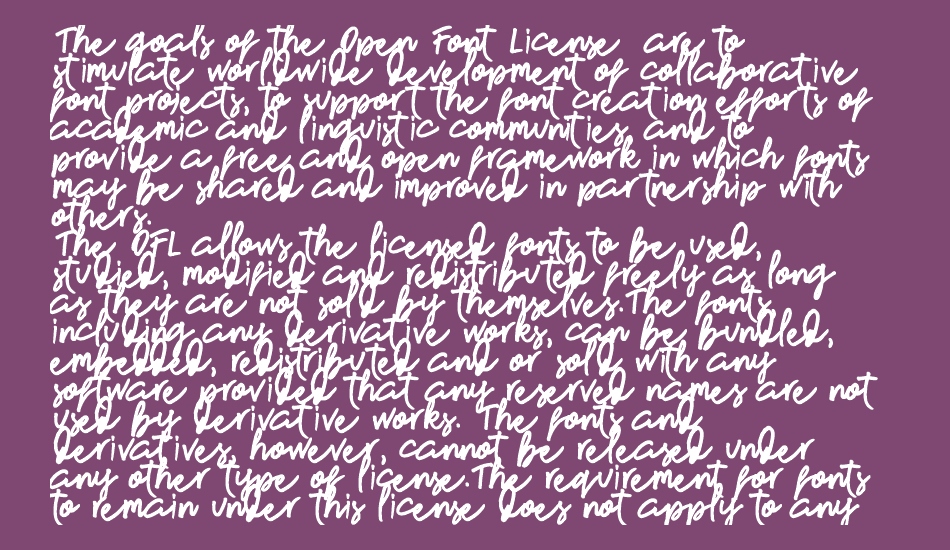 The goals of the Open Font License are to
stimulate worldwide development of collaborative
font projects, to support the font creation efforts of
academic and linguistic communities, and to
provide a free and open framework in which fonts
may be shared and improved in partnership with
others.
The OFL allows the licensed fonts to be used,
studied, modified and redistributed freely as long
as they are not sold by themselves.The fonts,
including any derivative works, can be bundled,
embedded, redistributed and or sold with any
software provided that any reserved names are not
used by derivative works. The fonts and
derivatives, however, cannot be released under
any other type of license.The requirement for fonts
to remain under this license does not apply to any